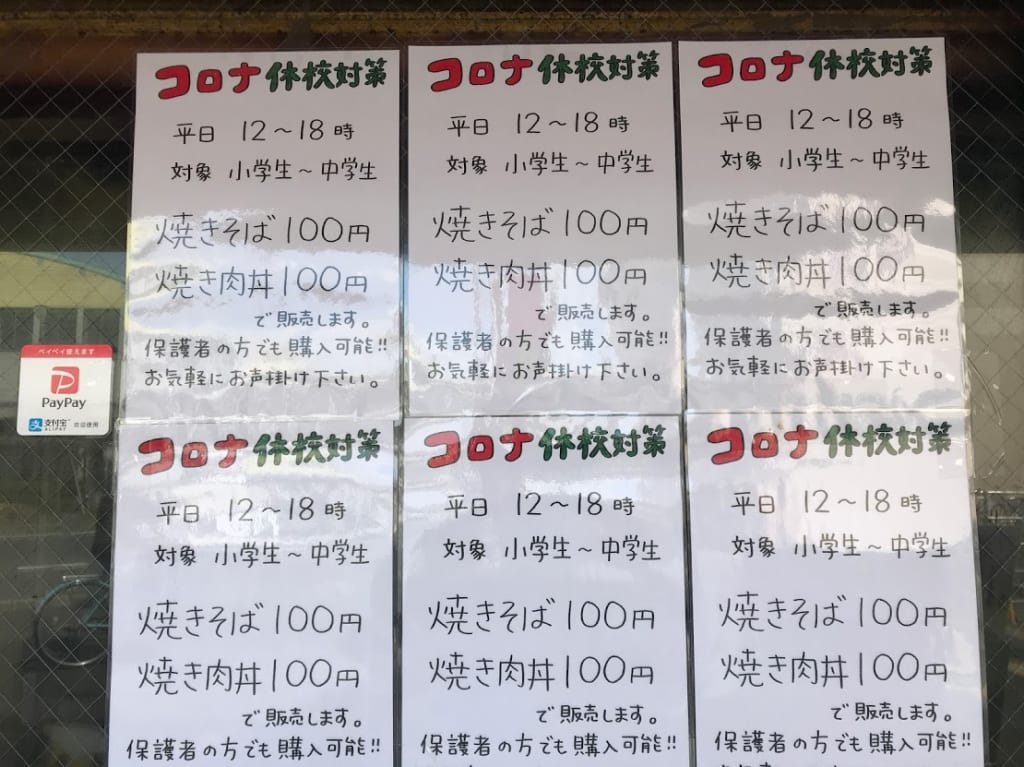 コロナ 休校対策
平日 12～18時
対象 小学生～中学生
焼きそば 100円
焼き肉丼 100円
で販売します。
保護者の方でも購入可能!!
お気軽にお声掛け下さい。
コロナ 休校対策
平日 12～18時
対象 小学生～中学生
焼きそば 100円
焼き肉丼 100円
で販売します。
保護者の方でも購入可能!!
お気軽にお声掛け下さい。
コロナ 休校対策
平日 12～18時
対象 小学生～中学生
焼きそば 100円
焼き肉丼 100円
で販売します。
保護者の方でも購入可能!!
お気軽にお声掛け下さい。
ペイペイ使えます
PayPay
支付宝
ALIPAY
欢迎使用
コロナ 休校対策
平日 12～18時
対象 小学生～中学生
焼きそば 100円
焼き肉丼 100円
で販売します。
保護者の方でも購入可能!!
コロナ 休校対策
平日 12～18時
対象 小学生～中学生
焼きそば 100円
焼き肉丼 100円
で販売します。
保護者の方でも購入可能!!
コロナ 休校対策
平日 12～18時
対象 小学生～中学生
焼きそば 100円
焼き肉丼 100円
で販売します。
保護者の方でも購入可能!!